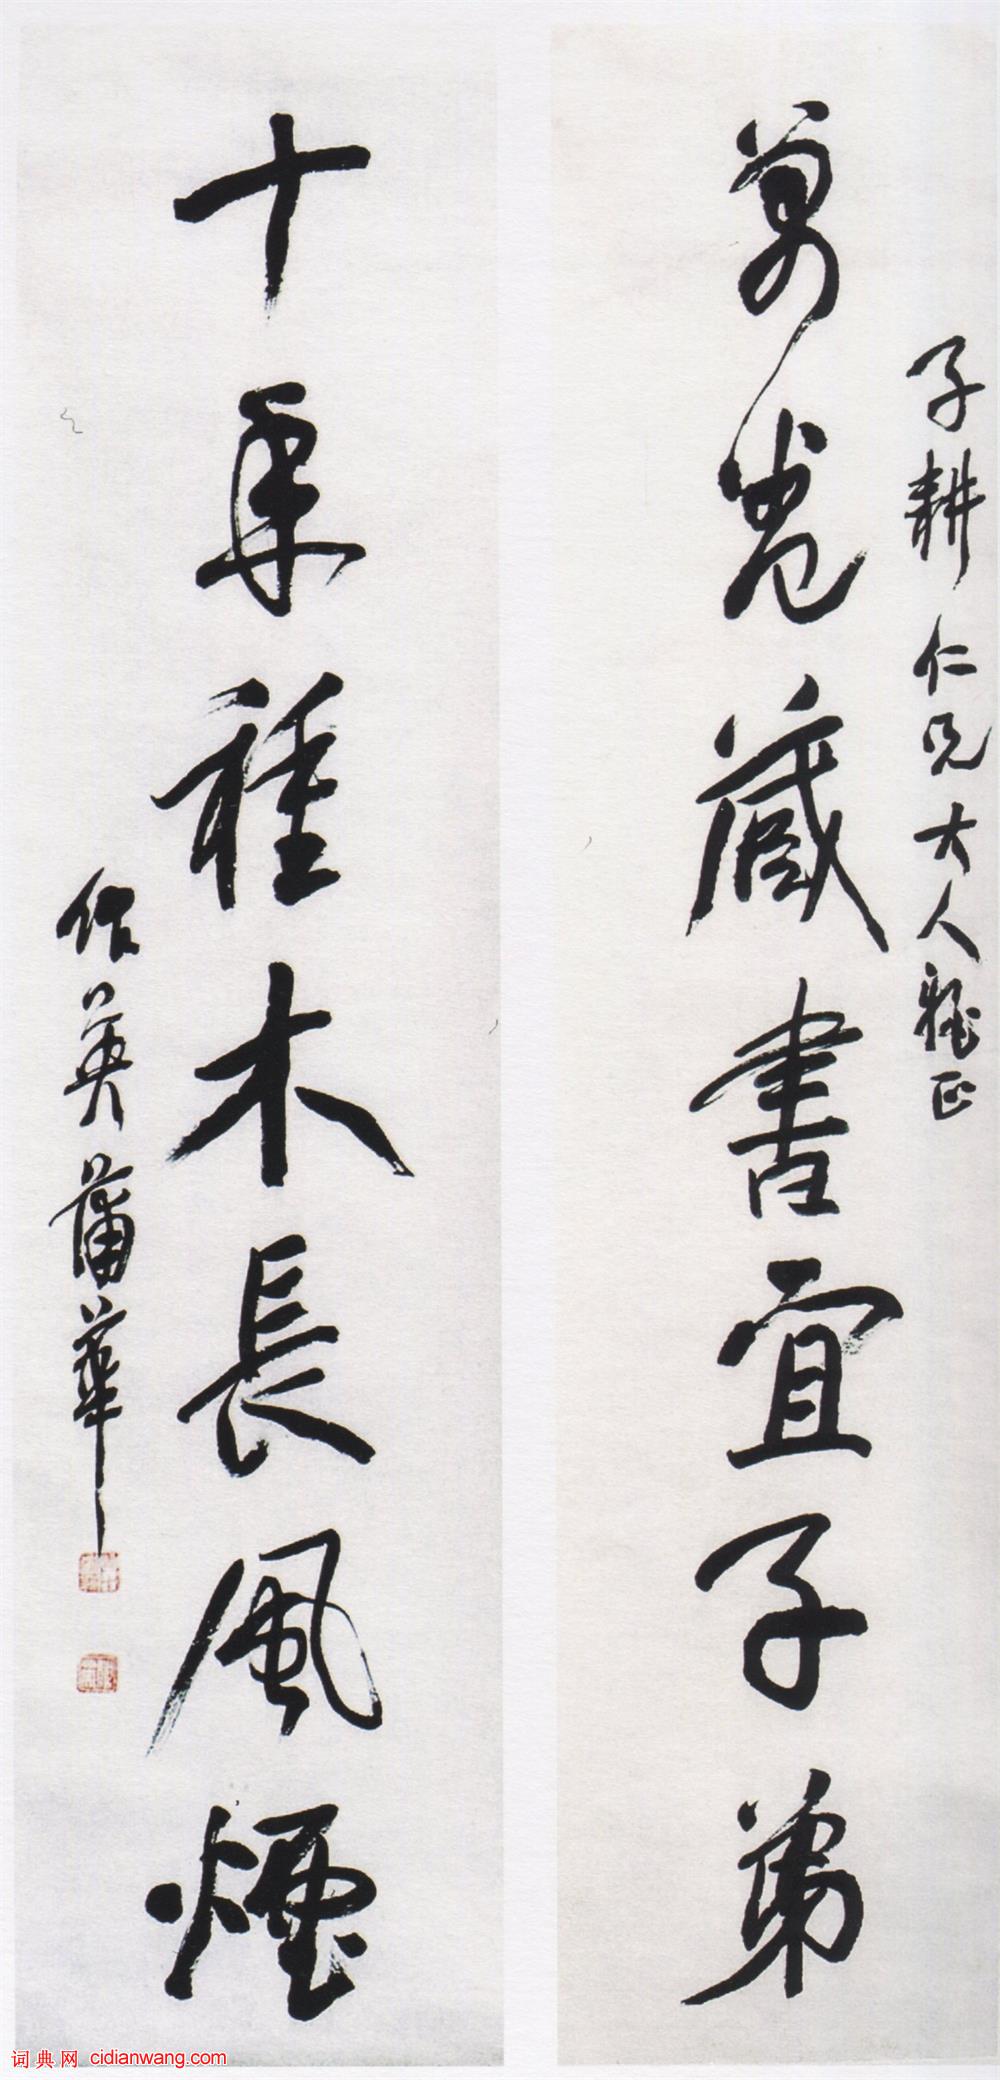 子耕仁兄大人雅正
萬卷藏書宜子弟
十年種木長風煙
作英蒲華
词典网 cidianwang.com